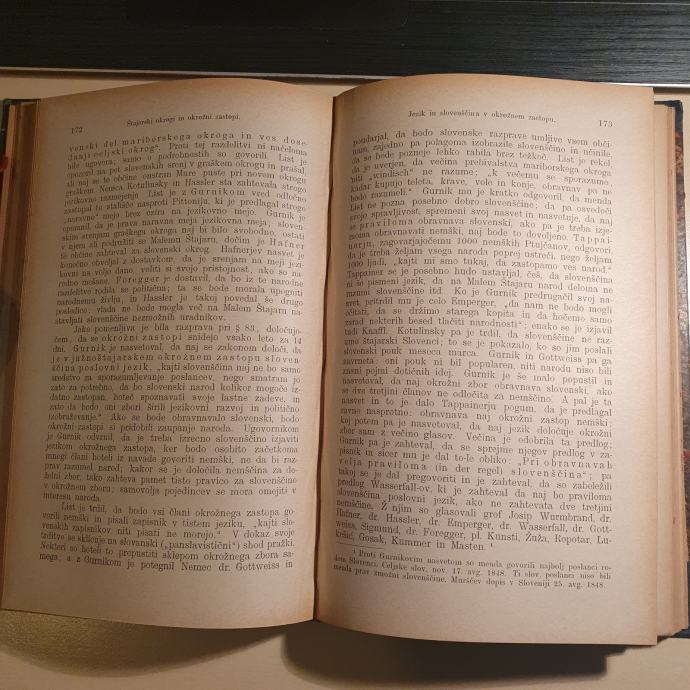 172
Štajarski okrogi in okrožni zastopi.
venski del mariborskega okroga in ves dose-
danji celjski okrog". Proti tej razdelitvi ni načeloma
bilo ugovora; samo o podrobnostih so govorili. List je
opozoril na pet slovenskih srenj v graškem okrogu in prašal,
ali naj se te občine onstran Mure puste pri novem okrogu
graškem. Nemca Kotulinsky in Hassler sta zahtevala strogo
jezikovno razmejenje. List je z Gurnikom vred odločno
zastopal to stališče nasproti Pittoniju, ki je predlagal strogo
„naravno" mejo brez ozira na jezikovno mejo. Gurnik je
opomnil, da je prava naravna meja jezikovna meja; sloven-
skim srenjam graškega okroga naj bi bilo svobodno, ostati
v njem ali podružiti se Malemu Štajarju, dočim je Hafner
te občine zahteval za slovenski okrog. Hafnerjev nasvet je
konečno obveljal z dostavkom, da je srenjam na meji jezi-
kovni na voljo dano, voliti si svojo pristojnost, ako so na-
rodno mešane. Foregger je dostavil, da bo iz te narodne
razdelitve rodila se politična; ta se bode morala upogniti
narodnemu življu, in Hassler je takoj povedal še drugo
posledico: vlada ne bode mogla več na Malem Štajaru na-
stavljati slovenščine nezmožnih uradnikov.
Jako pomenljiva je bila razprava pri § 83., določujo-
čem, da se okrožni zastopi snidejo vsako leto za 14
dni. Gurnik je nasvetoval, naj se zakonom določi, da
je v južnoštajarskem okrožnem zastopu sloven
ščina poslovni jezik, „kajti slovenščina naj ne bo samo
sredstvo za sporazumljenje poslancev, nego smatram jo
zato za potrebno, da bo slovenski narod kolikor mogoče iz-
datno zastopan, hoteč spoznavati svoje lastne zadeve, in
zato da bodo oni zbori širili jezikovni razvoj in politično
izobraževanje." Ako se bode obravnavalo slovenski, bodo
okrožni zastopi si pridobili zaupanje naroda. Ugovornikom
je Gurnik odvrnil, da je treba izrečno slovenščino izjaviti
jezikom okrožnega zastopa, ker bodo osobito začetkoma
mnogi člani hoteli iz navade govoriti nemški, ne da bi na-
prav razumel narod; kakor se je določila nemščina za de-
želni zbor, tako zahteva pamet tisto pravico za slovenščino
v okrožnem zboru; samovolja pojedincev se mora omejiti v
interesu naroda.
List je trdil, da bodo vsi člani okrožnega zastopa go-
vorili nemški in pisali zapisnik v tistem jeziku, „kajti slo-
venskih zapisnikov niti pisati ne morejo." V dokaz svoje
trditve se sklicuje na slovanski („panslavistični") shod pražki.
Nekteri so hoteli to prepustiti sklepom okrožnega zbora sa-
mega; a z Gurnikom je potegnil Nemec dr. Gottweiss in
Jezik in slovenščina v okrožnem zastopu.
173
poudarjal, da bodo slovenske razprave umljive vsem obči-
nam, zajedno pa polagoma izobrazile slovenščino in učinile,
da se bode pozneje lehko rabila brez težkoč. List je rekel
da je uverjen, da večina prebivalstva mariborskega okroga
niti „windisch" ne razume; „k večemu so sporazumno,
kadar kupujo teleta, krave, vole in konje, obravnav pa ne
bodo razumeli." Gurnik mu je kratko odgovoril, da menda
List ne pozna posebno dobro slovenščine; da pa osvedoči
svojo spravljivost, spremeni svoj nasvet in nasvetuje, da naj
se praviloma obravnava slovenski, ako pa je treba izje-
moma obravnavati nemški, naj bode to dovoljeno. Tappai-
nerju, zagovarjajočemu 1000 nemških Ptujčanov, odgovori
da je treba željam vsega narodu poprej ustreči, nego željam
1000 ljudij, „kajti mi smo tukaj, da zastopamo ves narod."
Tappainer se je posebno hudo ustavljal, češ, da slovenščina
ni še pismeni jezik, da na Malem Štajaru narod deloma ne
razumi slovenščine itd. Ko je Gurnik predrugačil svoj na-
svet, pritrdil mu je celo Emperger, „da nam ne bodo mogli
očitati, da se držimo starega kopita in da hočemo samo
zarad nekterih besed tlačiti narodnosti"; enako se je izjavil
tudi Knaffl. Kotulinsky pa je trdil, da slovenščine ne ra-
zumo štajarski Slovenci; to se je pokazalo, ko so jim poslali
slovenski pouk meseca marca. Gurnik in Gottweiss pa ga
zavrneta: oni pouk ni bil popularen, niti naroda niso bili
znani pojmi dotičnih idej. Gurnik je še malo popustil in
nasvetoval, da naj okrožni zbor obravnava slovenski, ako
se dve tretjini članov ne odločita za nemščino. A pal je ta
nasvet in to je dalo Tappainerju pogum, da je predlagal
ravno nasprotno: obravnava naj okrožni zastop nemški;
koj potem pa je nasvetoval, da naj jezik določuje okrožni
zbor sam z večino glasov. Večina je odobrila ta predlog;
Gurnik pa je zahteval, da se sprejme njegov predlog v za-
pisnik in sicer mu je dal to-le obliko: „Pri obravnavah
velja praviloma (in der regel) slovenščina"; pa
takoj se je dal pregovoriti in je zahteval, da so zabeležili
predlog Wasserfall-ov, ki je zahteval da naj bo praviloma
slovenščina poslovni jezik, ako ne zahtevata dve tretjini
nemščine. Ž njim so glasovali grof Josip Wurmbrand, dr.
Hafner, dr. Hassler, dr. Emperger, dr. Wasserfall, dr. Gott-
weiss, Sigmund, dr. Foregger, pl. Kunsti, Žuža, Ropotar, Lu-
kšič, Gosak, Kummer in Masten. ¹
¹ Proti Gurnikovim nasvetom so menda govorili najbolj poslanci ro-
dom Slovenci. Celjske slov. nov. 17. avg. 1848. Ti slov. poslanci niso bili
menda prav zmožni slovenščine. Muršćev dopis v Sloveniji 25. avg. 1848.